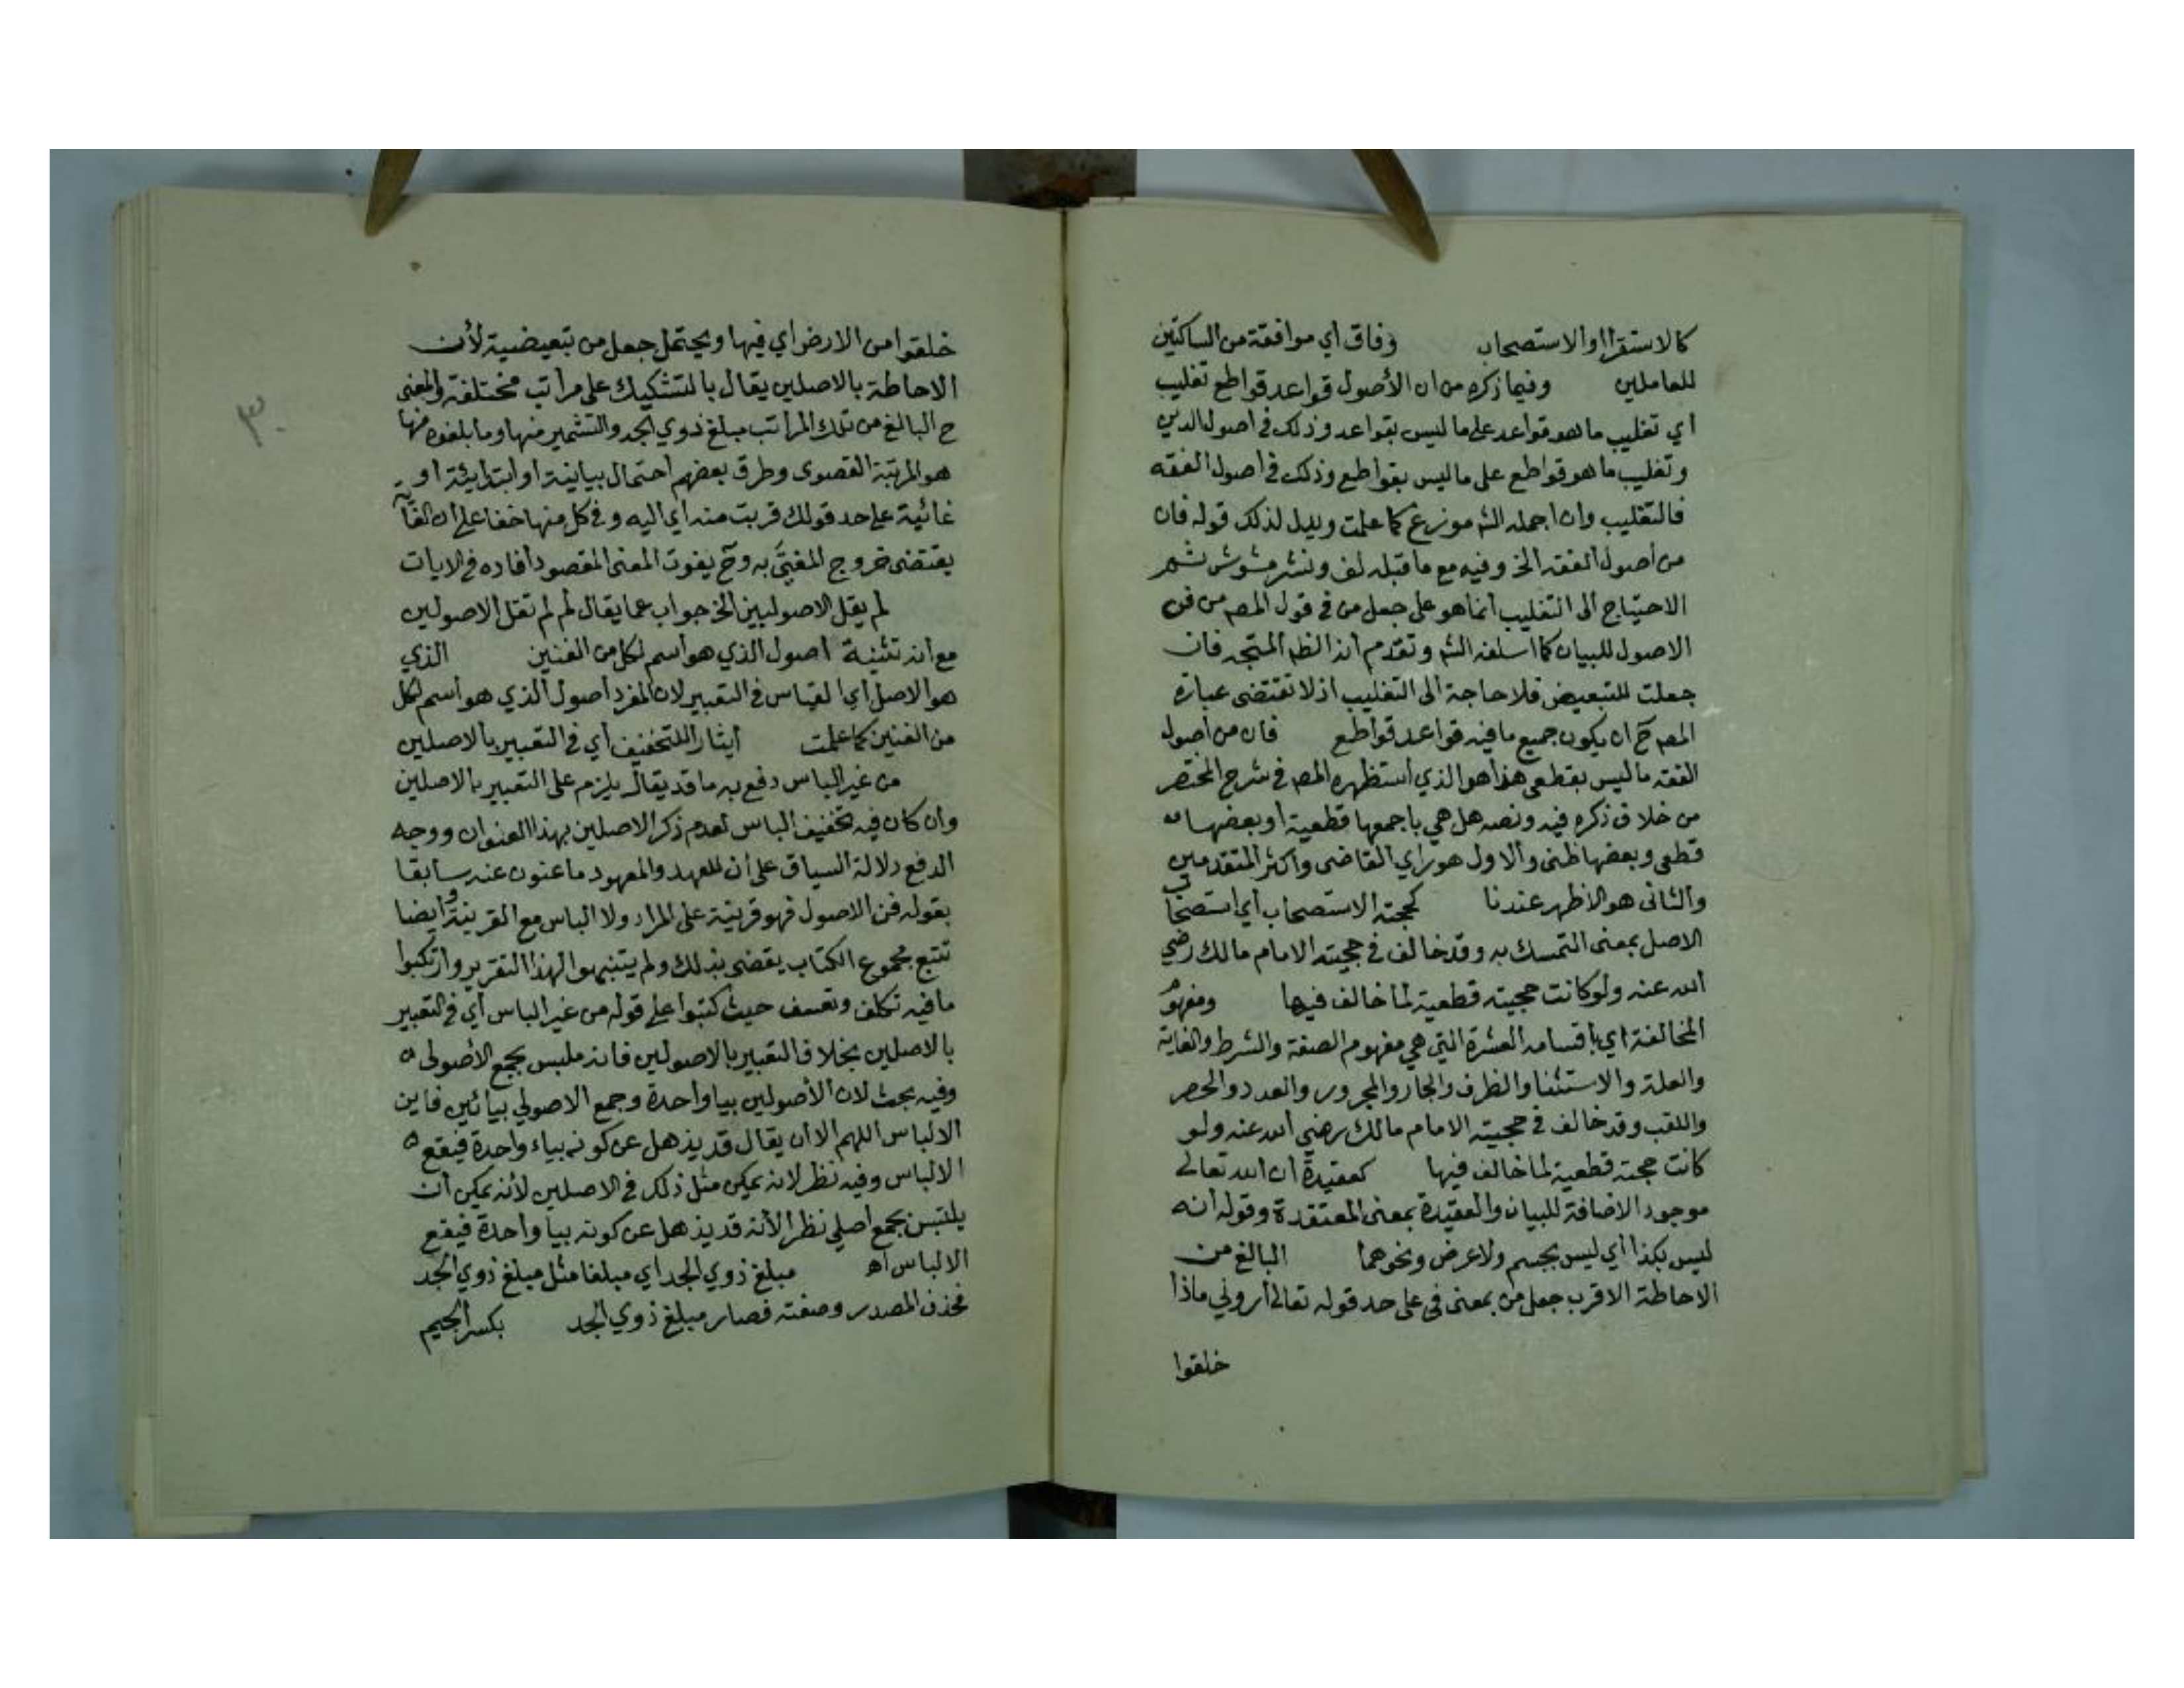 كالاستقرا او الاستصحاب وفاق أي موافقة من الساكتين
للعاملين وفيما ذكره من ان الأصول قواعد قواطع تغليب
اي تغليب ما هو قواعد على ما ليس بقواعد وذلك في اصول الدين
وتغليب ما هو قواطع على ما ليس بقواطع وذلك في اصول الفقه
فالتغليب وان اجمله الش موزع كما علمت ويدل لذلك قوله فان
من اصول الفقه الخ وفيه مع ما قبله لف ونشر مشوش ثم
الاحتياج الى التغليب انما هو على جعل من في قول المص من فن
الاصول للبيان كما اسلفه الش وتقدم انه الظم المتجه فان
جعلت للتبعيض فلا حاجة الى التغليب اذ لا تقتضى عبارة
المص ح ان يكون جميع ما فيه قواعد قواطع فان من اصول
الفقه ما ليس بقطعى هذا هو الذي استظهره المص في شرح المختصر
من خلاف ذكره فيه ونصه هل هي باجمعها قطعية او بعضها
قطعى وبعضها ظنى والاول هو راي القاضى واكثر المتقدمين
والثانى هو الاظهر عندنا كحجته الاستصحاب أي استصحاب
الاصل بمعنى التمسك به وقد خالف في حجيته الامام مالك رضي
الله عنه ولو كانت حجيته قطعية لما خالف فيها ومفهوم
المخالفة اي باقسامه العشرة التي هي مفهوم الصفة والشرط والغاية
والعلة والاستثنا والظرف والجار والمجرور والعدد والحصر
واللقب وقد خالف في حجيته الامام مالك رضي الله عنه ولو
كانت حجته قطعية لما خالف فيها كعقيدة ان الله تعالى
موجود الاضافة للبيان والعقيدة بمعنى المعتقدة وقوله انه
ليس بكذا أي ليس بجسم ولا عرض ونحوهما البالغ من
الاحاطة الاقرب جعل من بمعنى في على حد قوله تعالى أروني ماذا
خلقوا
خلقوا من الارض أي فيها ويحتمل جعل من تبعيضية لأن
الاحاطة بالاصلين يقال بالتشكيك على مراتب مختلفة والمعنى
ح البالغ من تلك المراتب مبلغ ذوي الجد والتشمير منها وما بلغوه منها
هو المرتبة القصوى وطرق بعضهم احتمال بيانية او ابتدايئة او
غائية على حد قولك قربت منه اي اليه وفي كل منها خفا على ان الغاية
يقتضى خروج المغيَّى به وح يفوت المعنى المقصود افاده في الايات
لم يقل الاصوليين الخ جواب عما يقال لم لم تقل الاصولين
مع انه تثنية اصول الذي هو اسم لكل من الفنين الذي
هو الاصل أي القياس في التعبير لان المفرد اصول الذي هو اسم لكل
من الفنين كما علمت ايثارا للتخفيف أي في التعبير بالاصلين
من غير الباس دفع به ما قد يقال يلزم على التعبير بالاصلين
وان كان فيه تخفيف الباس لعدم ذكر الاصلين بهذا العنوان ووجه
الدفع دلالة السياق على ان للعهد والمعهود ما عنون عنه سابقا
بقوله فن الاصول فهو قرينة على المراد ولا الباس مع القرينة وايضا
تتبع مجموع الكتاب يقضى بذلك ولم يتنبهوا لهذا التقرير وارتكبوا
ما فيه تكلف وتعسف حيث كتبوا على قوله من غير الباس أي في التعبير
بالاصلين بخلاف التعبير بالاصولين فانه ملبس بجمع الأصولى
وفيه بحث لان الأصولين بيا واحدة وجمع الاصولي بيائين فاين
الالباس اللهم الا ان يقال قد يذهل عن كونه بياء واحدة فيقع
الالباس وفيه نظر لانه يمكن مثل ذلك في الاصلين لأنه يمكن أن
يلتبس بجمع اصلي نظرا لأنه قد يذهل عن كونه بيا واحدة فيقع
الالباس اه مبلغ ذوي الجد اي مبلغا مثل مبلغ ذوي الجد
فحذف المصدر وصفته فصار مبلغ ذوي الجد بكسر الجيم